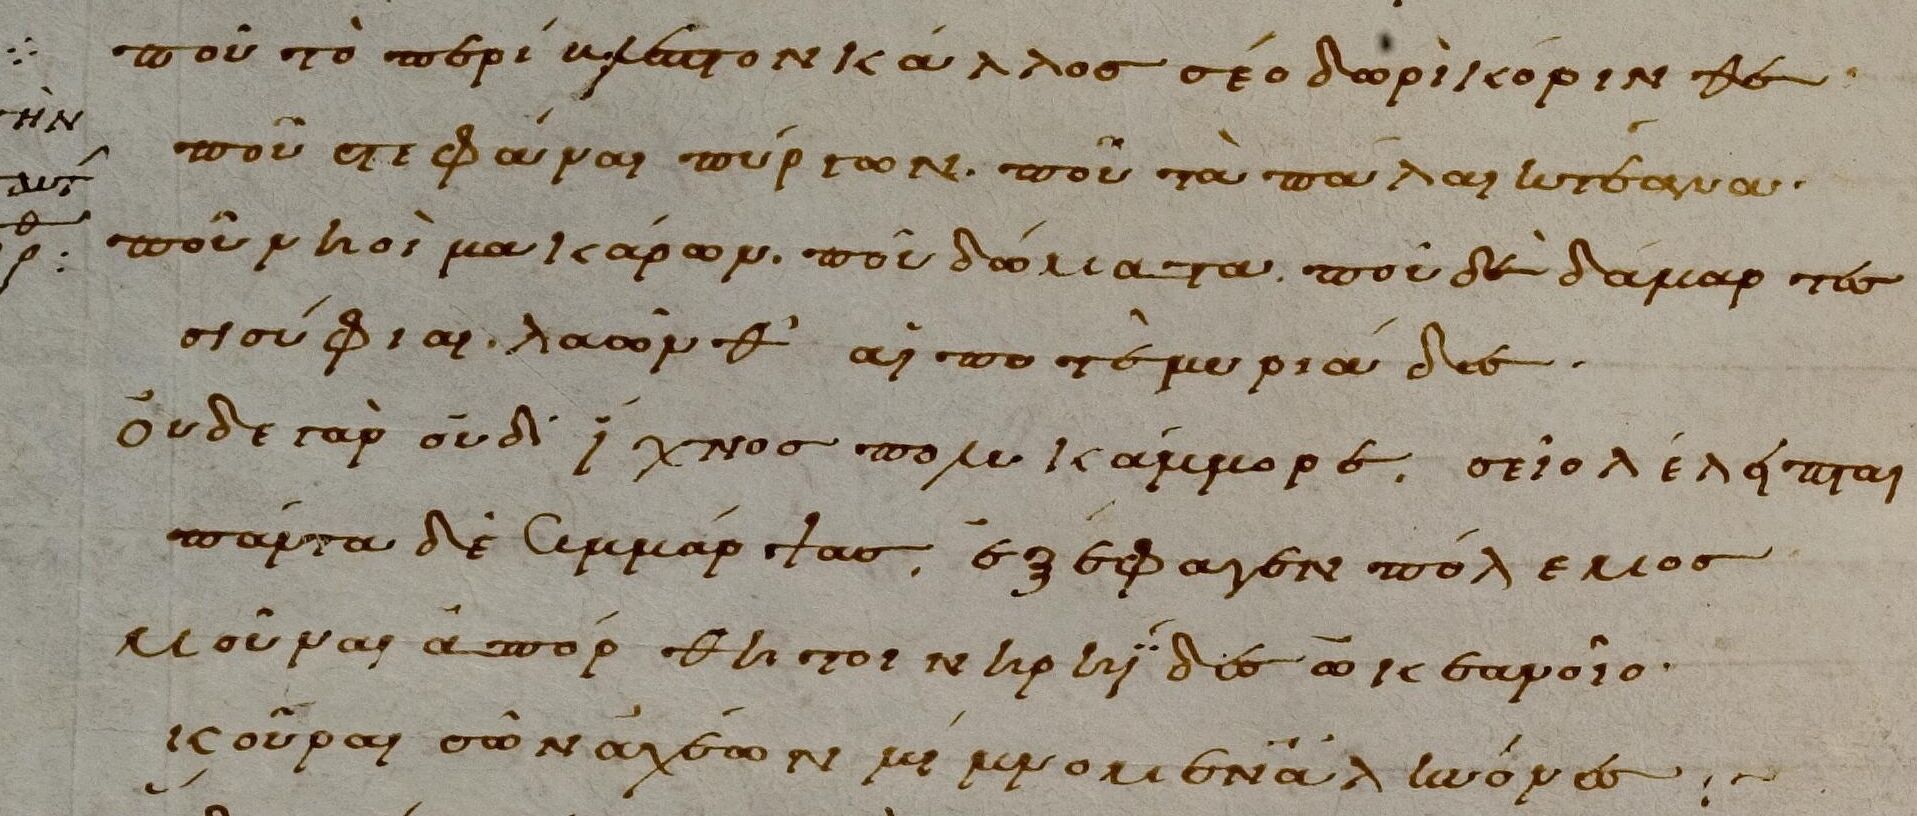 ποῦ τὸ περίβλεπτον κάλλος σέο δωρὶ κόρινθε·
ποῦ στεφάναι πύργων. ποῦ τὰ πάλαι κτέανα·
ποῦ νηοὶ μακάρων. ποῦ δώματα. ποῦ δὲ δάμαρτες
σισύφιαι. λαῶν θ' αἵ ποτὲ μυριάδες.
οὐδε γὰρ οὐδ' ἴχνος πολυκάμμορε. σεῖο λέλειπται
πάντα δὲ συμμάρψας. ἐξέφαγεν πόλεμος
μοῦναι ἀπόρθητοι νηρηΐδες ὠκεανοῖο·
κοῦραι σῶν ἀχέων μίμνομεν ἁλκυόνες :~